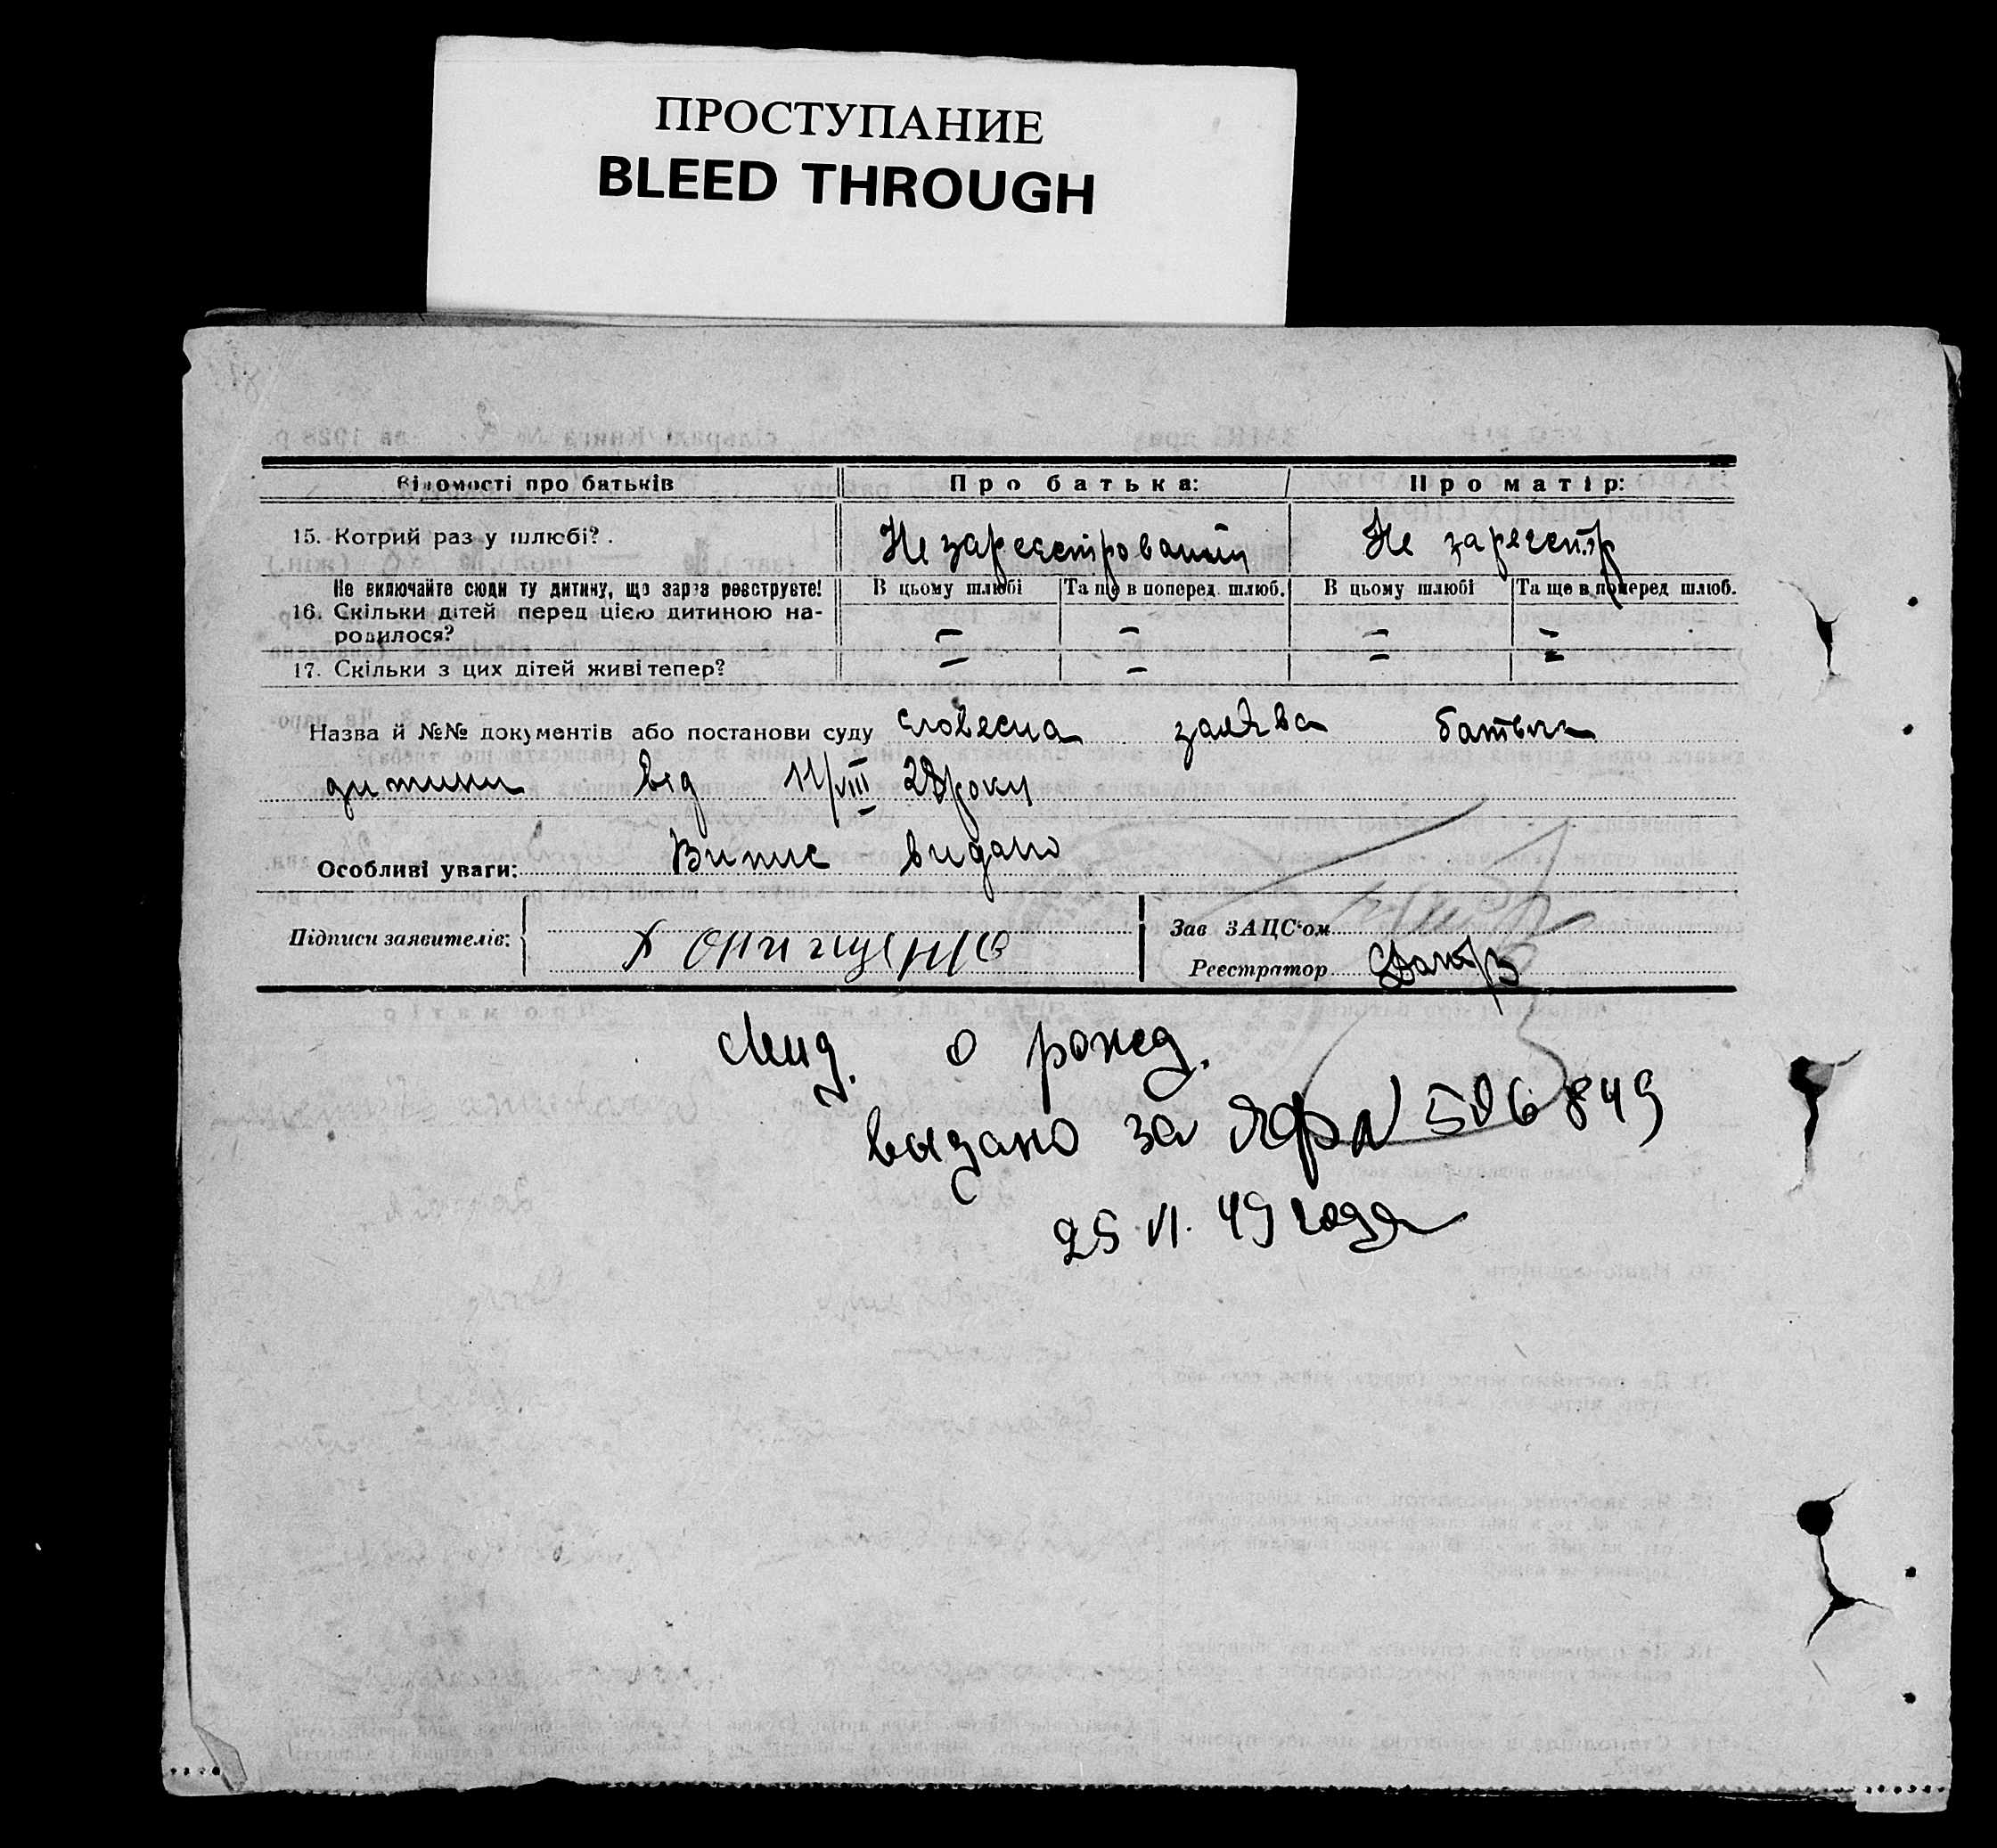 ПРОСТУПАНИЕ
BLEED THROUGH
Відомості про батьків
Про батька:
Про матір:
15. Котрий раз у шлюбі?.
Не зареєстрований
Не зареєстр
Не включайте сюди ту дитину, що зараз реєструєте!
В цьому шлюбі
Та ще в поперед. шлюб.
В цьому шлюбі
Та ще в поперед шлюб.
16. Скільки дітей перед цією дитиною на-
родилося?
— — — —
17. Скільки з цих дітей живі тепер?
— — — —
Назва й №№ документів або постанови суду словесна заява батька
дитини від 11/VIII 28 року
Особливі уваги: Випис видано
Підписи заявителів:
Зав ЗАЦС'ом
Реєстратор
о рожд.
выдано за ЯФ № 506849
25 VI. 49 года